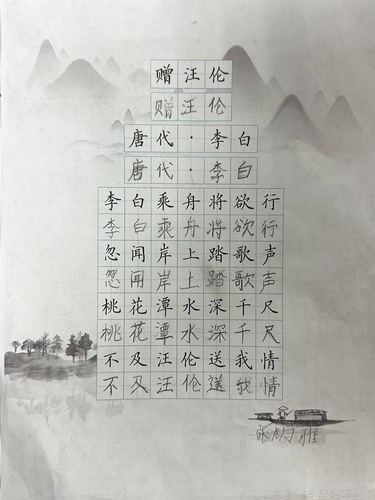 赠汪伦
赠汪伦
唐代·李白
唐代·李白
李白乘舟将欲行
李白乘舟将欲行
忽闻岸上踏歌声
忽闻岸上踏歌声
桃花潭水深千尺
桃花潭水深千尺
不及汪伦送我情
不及汪伦送我情